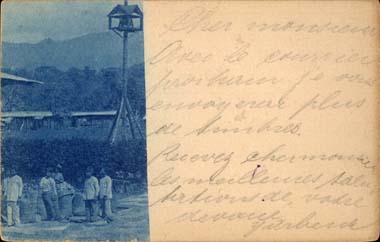 Cher monsieur
Avec le courrier
prochain je vous
enverrai plus
de timbres.
Recevez cher monsieur
les meilleures salu
tations de votre
dévoué